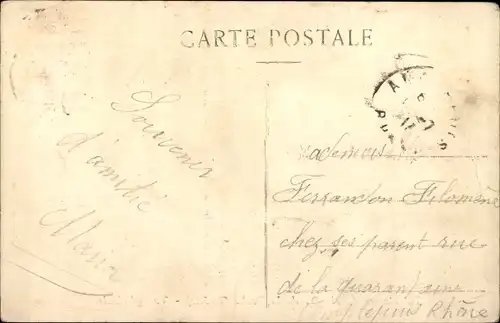 CARTE POSTALE
Souvenir
d'amitié
Marie
Mademoise
Ferrandon Filomène
chez ses parent rue
de la quarantaine
Amplepuis Rhône